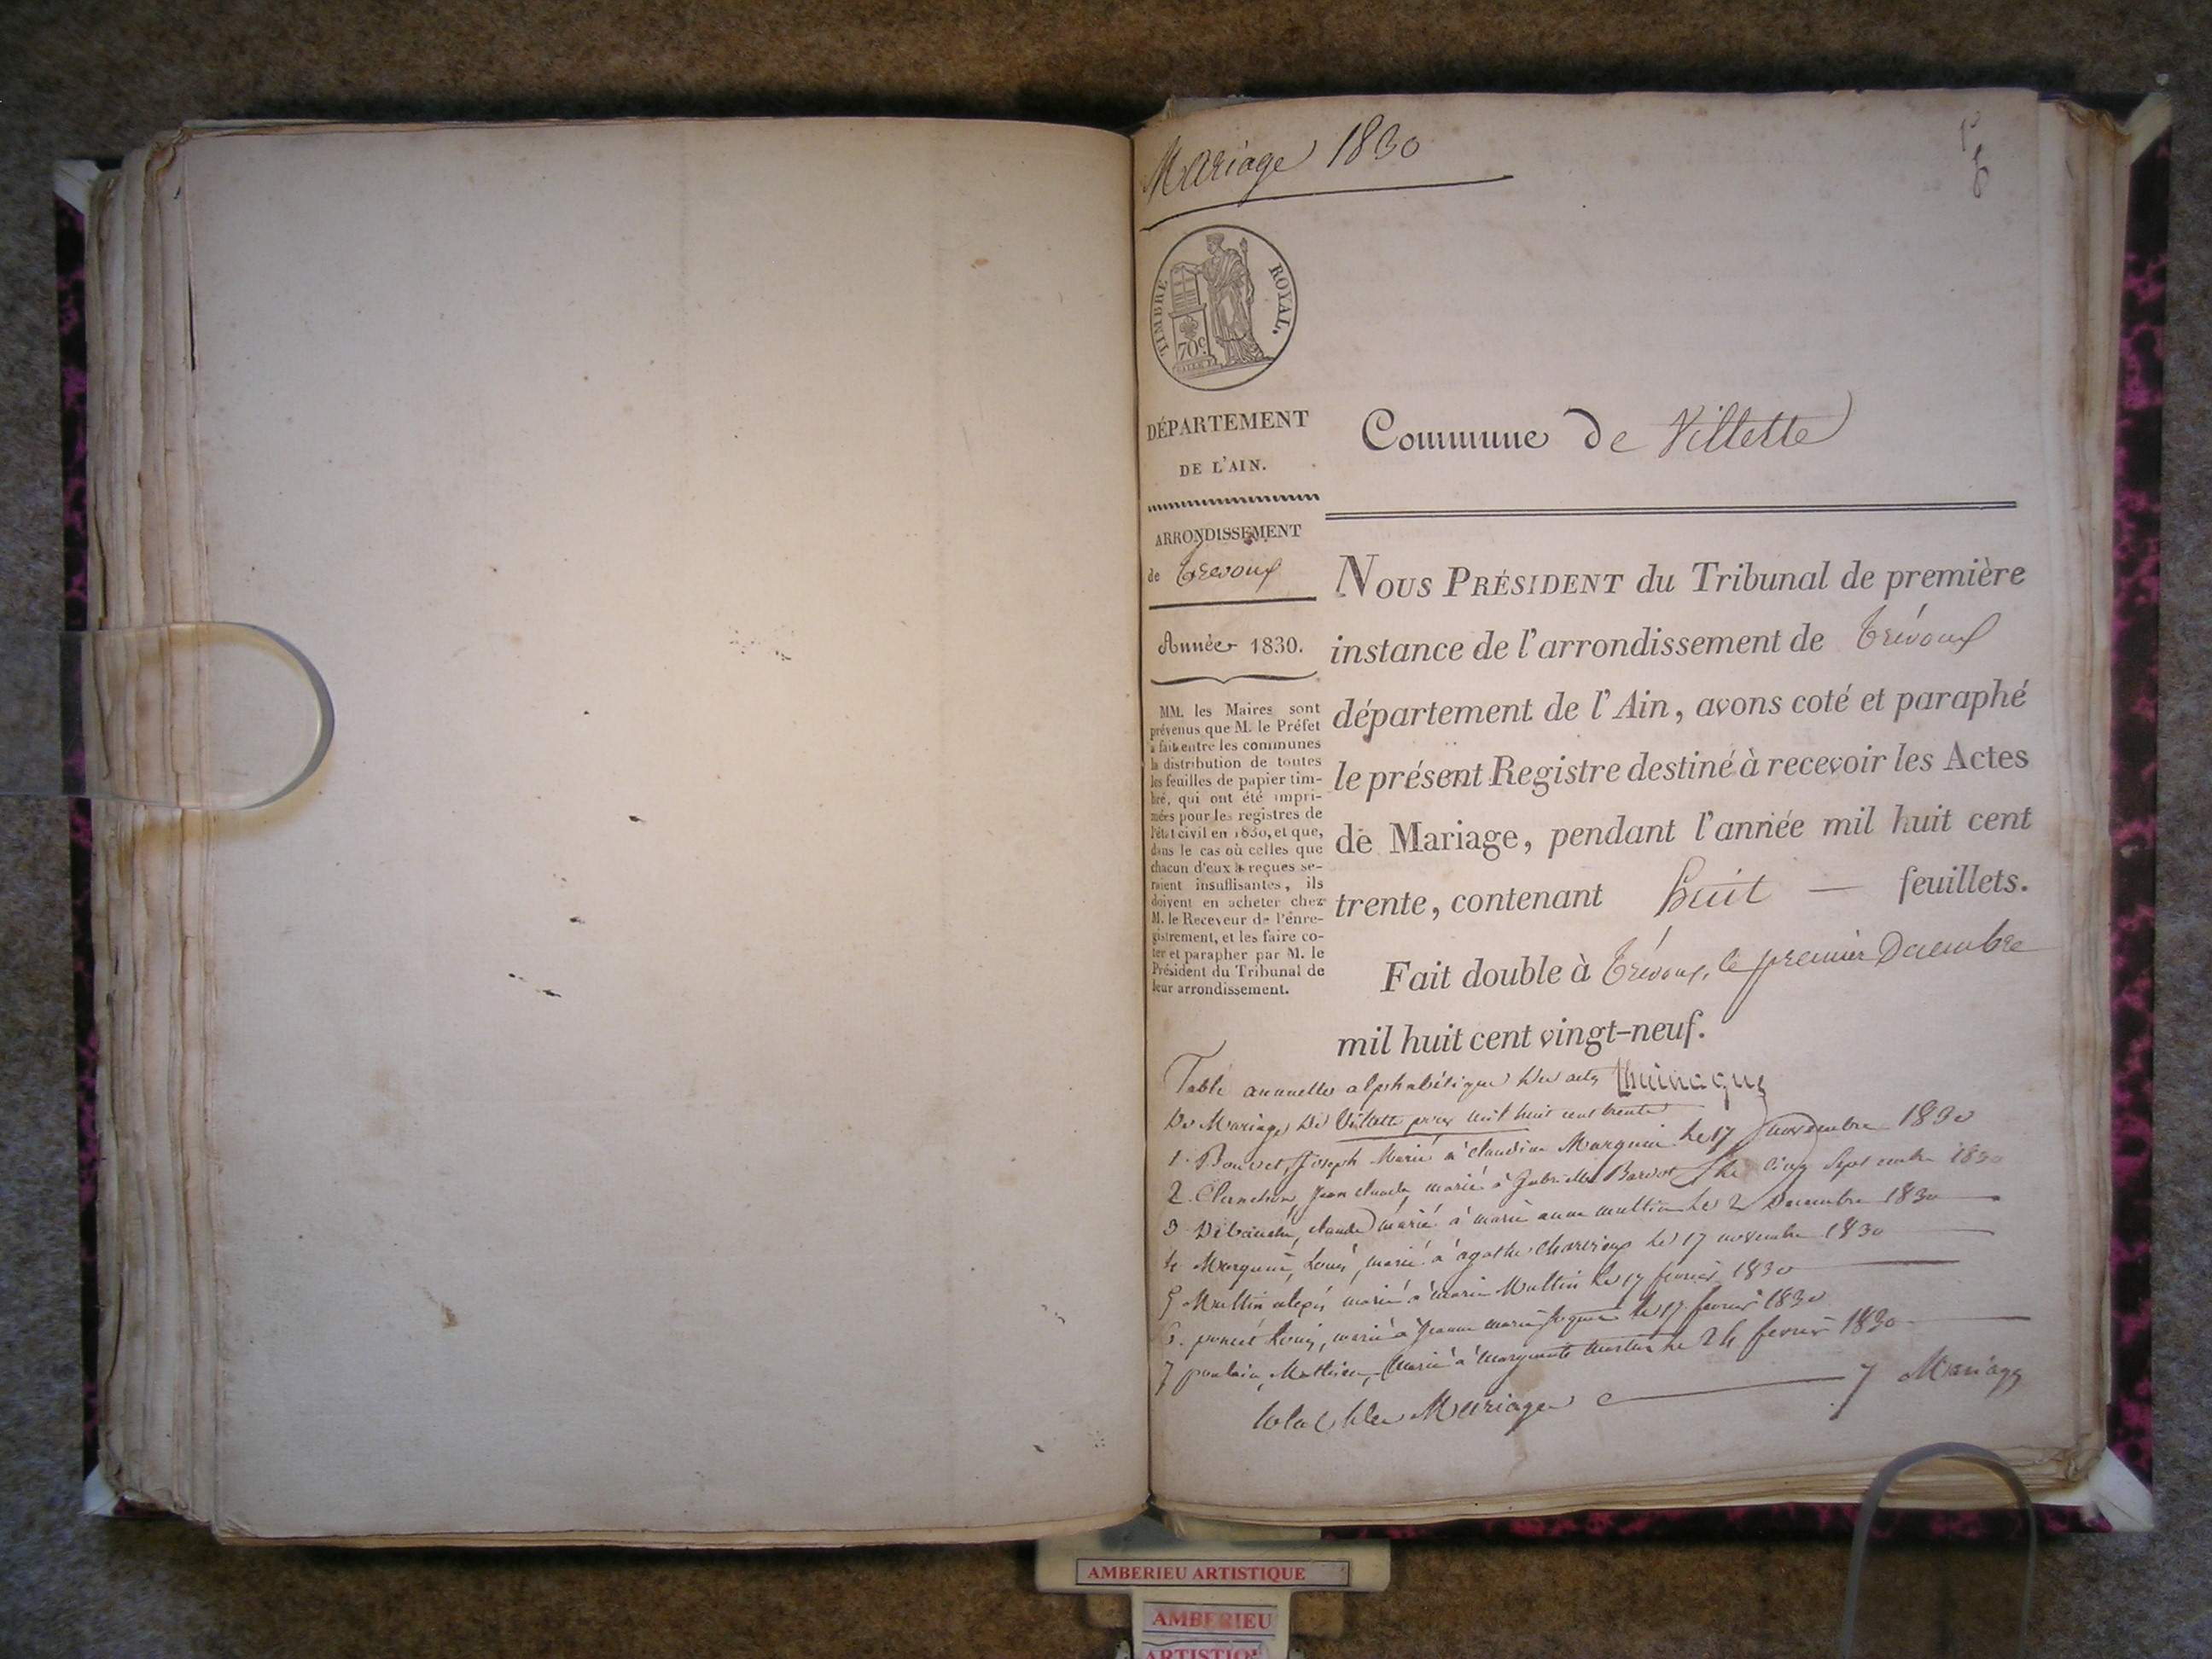 Mariage 1830
TIMBRE ROYAL.
70c
DÉPARTEMENT
DE L'AIN.
ARRONDISSEMENT
de Trévoux
Année 1830.
MM. les Maires sont
prévenus que M. le Préfet
a fait entre les communes
la distribution de toutes
les feuilles de papier tim-
bré, qui ont été impri-
mées pour les registres de
l'état civil en 1830, et que,
dans le cas où celles que
chacun d'eux a reçues se-
raient insuffisantes, ils
doivent en acheter chez
M. le Receveur de l'enre-
gistrement, et les faire co-
ter et parapher par M. le
Président du Tribunal de
leur arrondissement.
Commune de Villette
NOUS PRÉSIDENT du Tribunal de première
instance de l'arrondissement de Trévoux
département de l'Ain, avons coté et paraphé
le présent Registre destiné à recevoir les Actes
de Mariage, pendant l'année mil huit cent
trente, contenant huit — feuillets.
Fait double à Trévoux, le premier Decembre
mil huit cent vingt-neuf.
Table annuelle alphabétique des actes
De Mariage de Villette pour mil huit cent trente
1. Bouvet, Joseph Marié à claudine Marguin le 17 novembre 1830
2. jean claude, marié à gabrielle le cinq Septembre 1830
3 claude marié à marie anne multin le 2 Decembre 1830
4 Marguin, Louis, marié à agathe le 17 novembre 1830
5 Multin marié à marie Multin le 17 fevrier 1830
6. Louis, marié à jeanne marie le 17 fevrier 1830
7 Mathieu, marié à marguerite le 24 fevrier 1830
total des Mariages 7 Mariages
AMBERIEU ARTISTIQUE
AMBERIEU
ARTISTIQUE